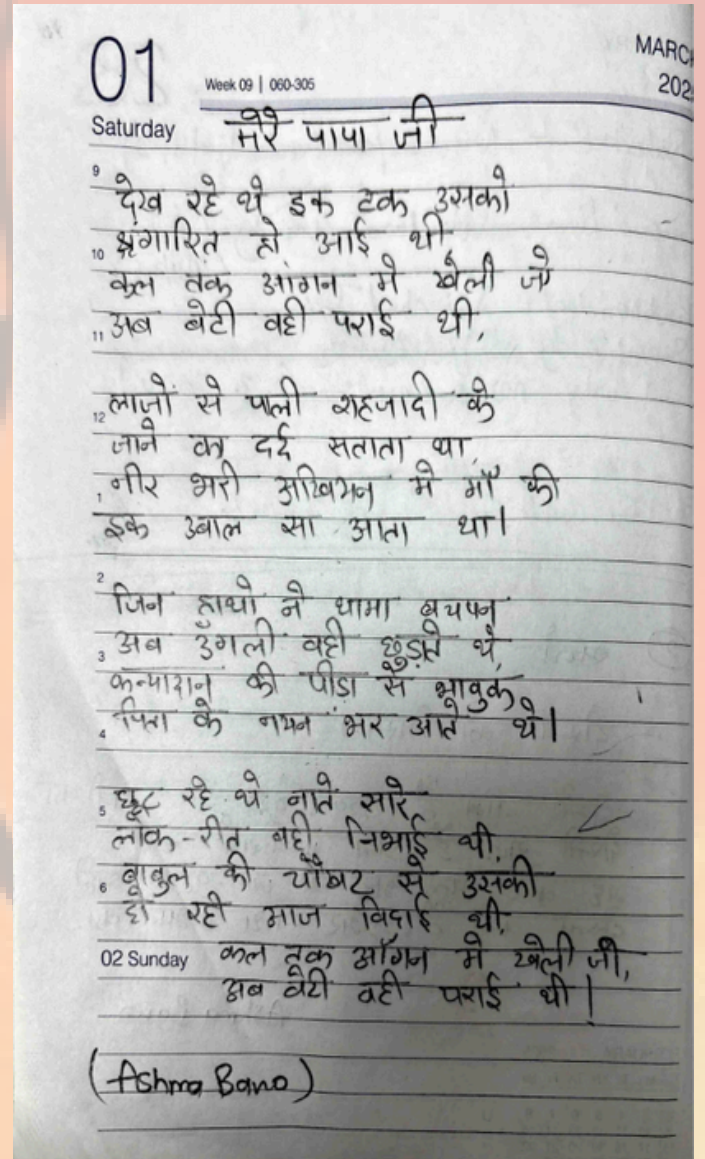 01
MARCH
202
Week 09 | 060-305
Saturday
मेरे पापा जी
9
देख रहे थे इक टक उसको
श्रृंगारित हो आई थी
10
कल तक आंगन मे खेली जो
11 अब बेटी वही पराई थी,
12 लाजों से पाली शहजादी के
जाने का दर्द सताता था,
1 नीर भरी अखियन मे माँ की
इक उबाल सा आता था।
2
जिन हाथो ने थामा बचपन
3 अब उँगली वही छुड़ाते थे,
कन्यादान की पीडा से भावुक
4 पिता के नयन भर आते थे।
5 छूट रहे थे नाते सारे
लोक-रीत वही निभाई थी,
6 बाबुल की चौखट से उसकी
हो रही आज विदाई थी,
02 Sunday कल तक आँगन मे खेली जो,
अब बेटी वही पराई थी।
(Ashma Bano)